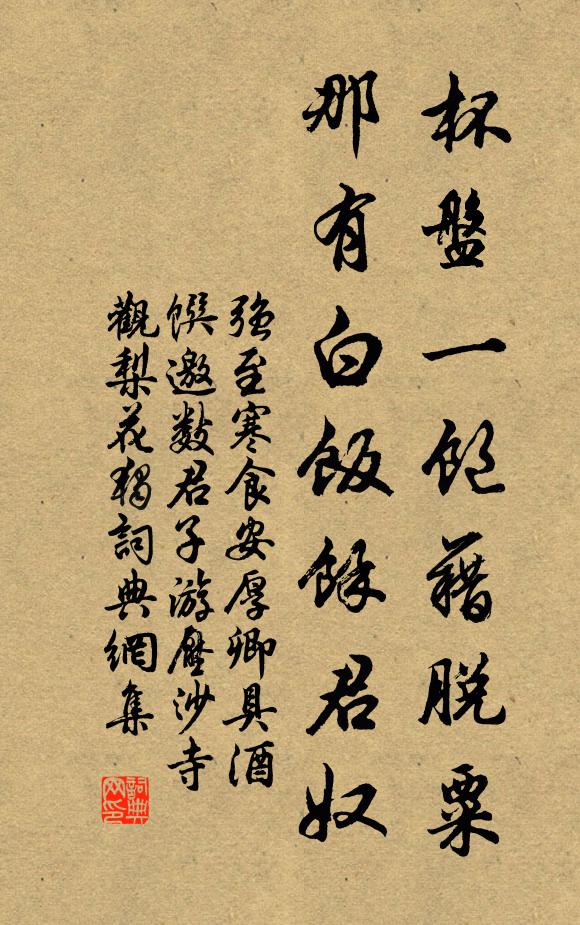 杯盤一飽藉脫粟
那有白飯餘君奴
強至寒食安厚卿具酒
饌邀數君子游壓沙寺
觀梨花獨詞典網集
詞典网印